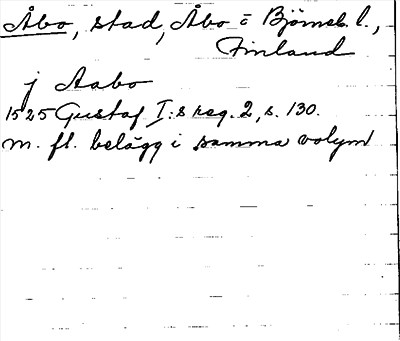 Åbo, stad, Åbo o Björneb. l.,
Finland
j Aabo
1525 Gustaf I:s reg. 2, s. 130.
m. fl. belägg i samma volym